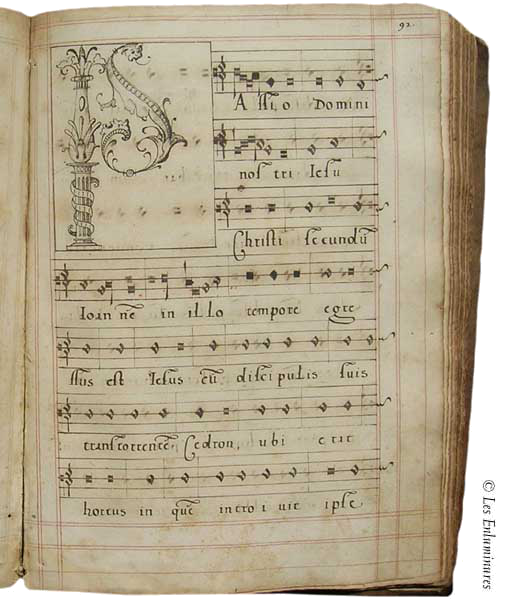 92.
PAssi o Domini
nos tri Iesu
Christi secundũ
Ioan nẽ in illo tempore egre
ssus est Iesus cũ disci pulis suis
transtorrentẽ Cedron, ubi erat
hortus in quẽ intro i uit ipse
© Les Enluminures